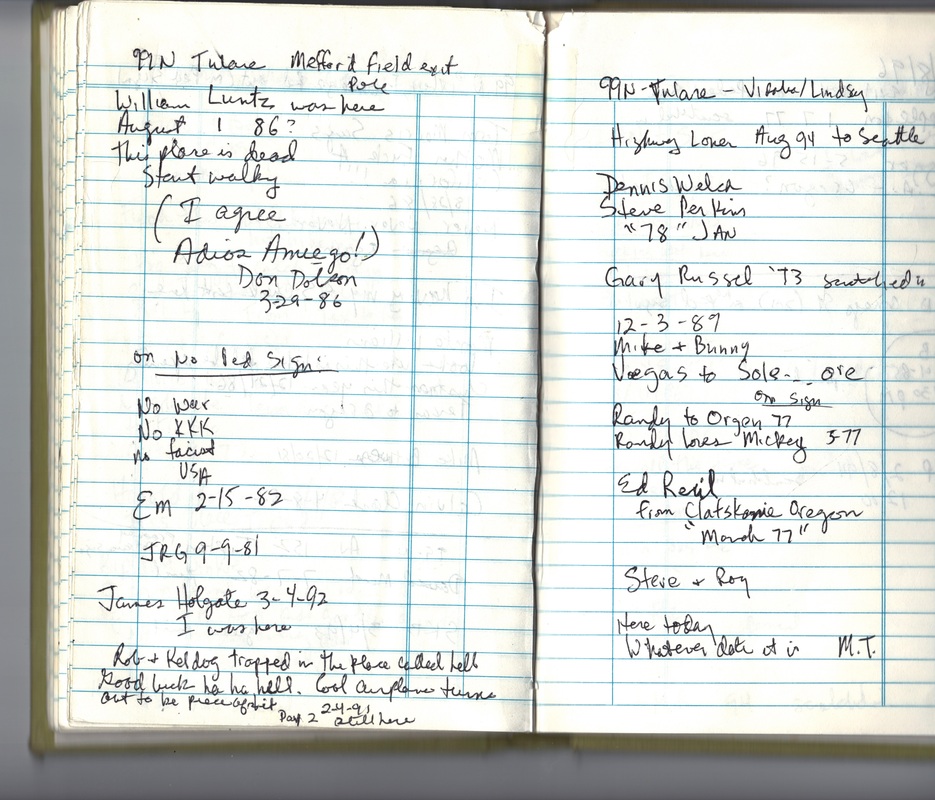 99N Tulare Mefford field exit
Pole
William Luntz was here
August 1 86?
This place is dead
Start walky
(I agree
Adios Ameego!)
Don Dotson
3-29-86
on No Ped Sign:
No War
No KKK
no facist
USA
Em 2-15-82
JRG 9-9-81
James Holgate 3-4-92
I was here
Rob + Keldog trapped in the place called hell
Good luck ha ha hell. Cool airplane turns
out to be piece of
2-4-91
Day 2 still here
99N-Tulare - Visalia/Lindsay
Highway Loner Aug 94 to Seattle
Dennis Welch
Steve Perkins
"78" JAN
Gary Russel '73 scratched in
12-3-89
Mike + Bunny
Veegas to Sole... ore
on sign
Randy to Orgen 77
Randy loves Mickey 5-77
Ed
from Clatskanie Oregon
"March 77"
Steve + Roy
Here today
Whatever date it is M.T.